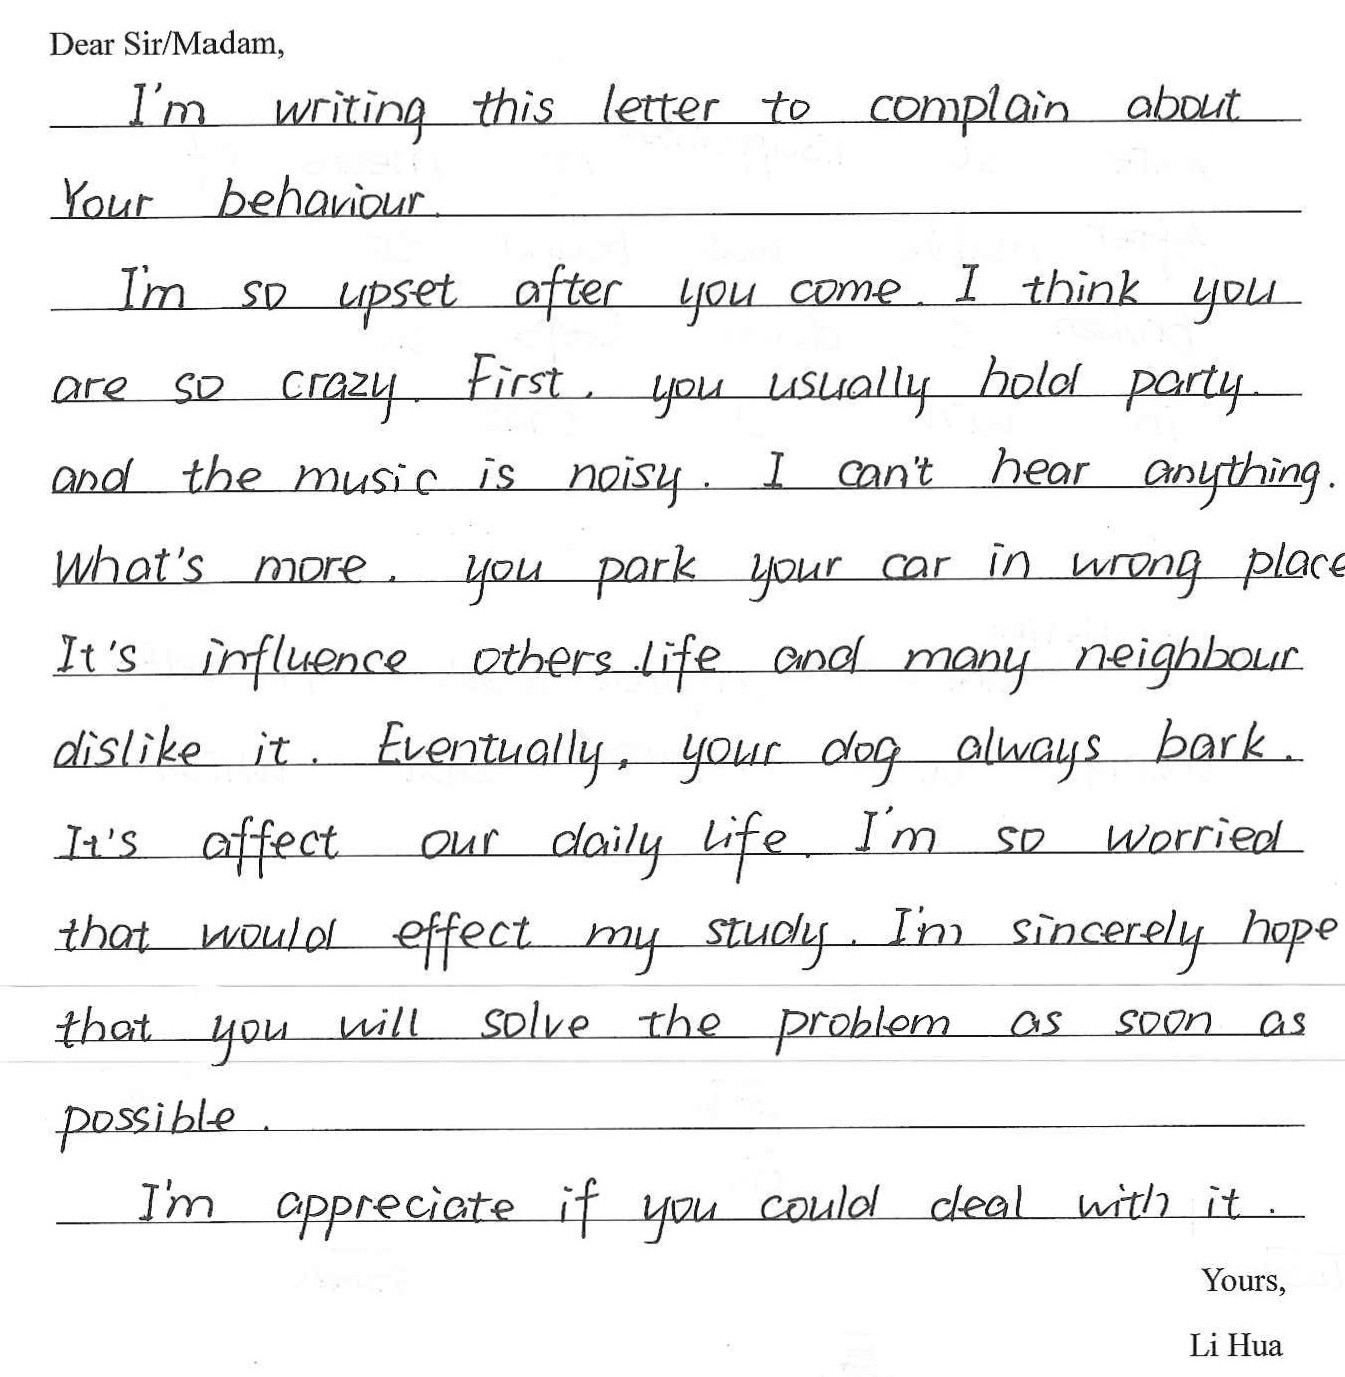 Dear Sir/Madam,
I'm writing this letter to complain about
Your behaviour.
I'm so upset after you come. I think you
are so crazy. First, you usually hold party.
and the music is noisy. I can't hear anything.
What's more, you park your car in wrong place
It's influence others life and many neighbour
dislike it. Eventually, your dog always bark.
It's affect our daily life. I'm so worried
that would effect my study. I'm sincerely hope
that you will solve the problem as soon as
possible.
I'm appreciate if you could deal with it.
Yours,
Li Hua